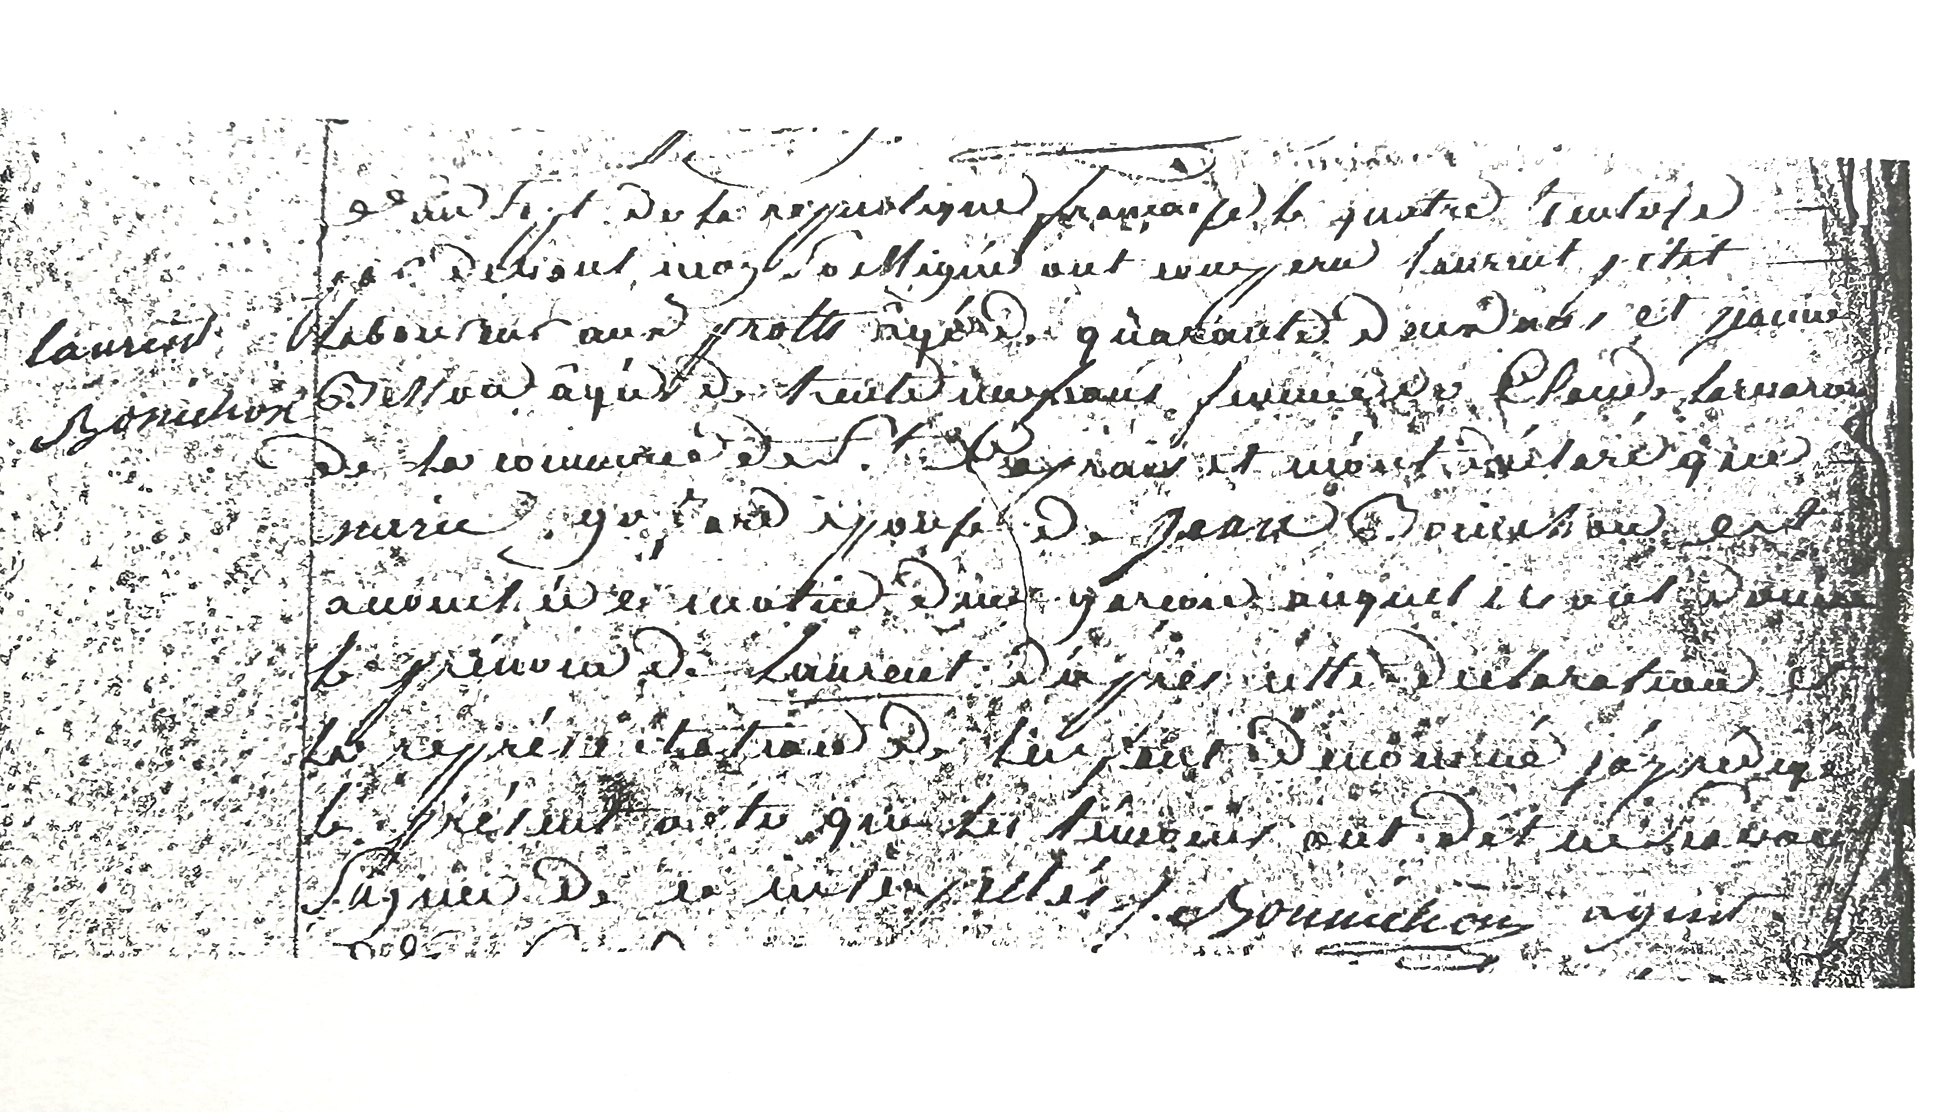 laurent
Bonnichon
an sept de la republique française le quatre ventose
devant moy sousigné ont comparu laurent petit
laboureur aux frotts âgé de quarante deux ans et jeanne
âgée de trente neuf ans femme de Claude
de la commune de St et m'ont déclaré que
marie epouse de jean Bonichon est
acouchée ce matin d'un garcon auquel ils ont donné
le prénom de Laurent d'après cette declaration et
la représentation de l'enfant denommé j'ay redigé
le présent acte que les témoins ont dit ne savoir
signer de ce interpellés. Bonnichon agent